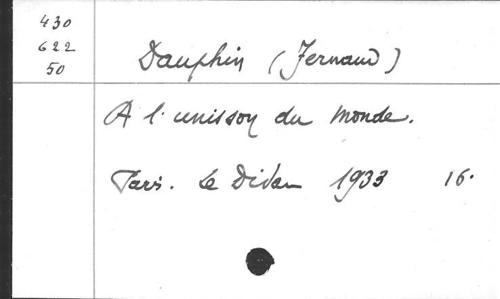 430
622
50
Dauphin (Fernand)
A l'unisson du Monde.
Paris. Le Divan 1933 16.